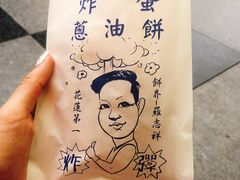 炸蛋
蔥油餅
餅界–羅志祥
花蓮第一
炸
彈